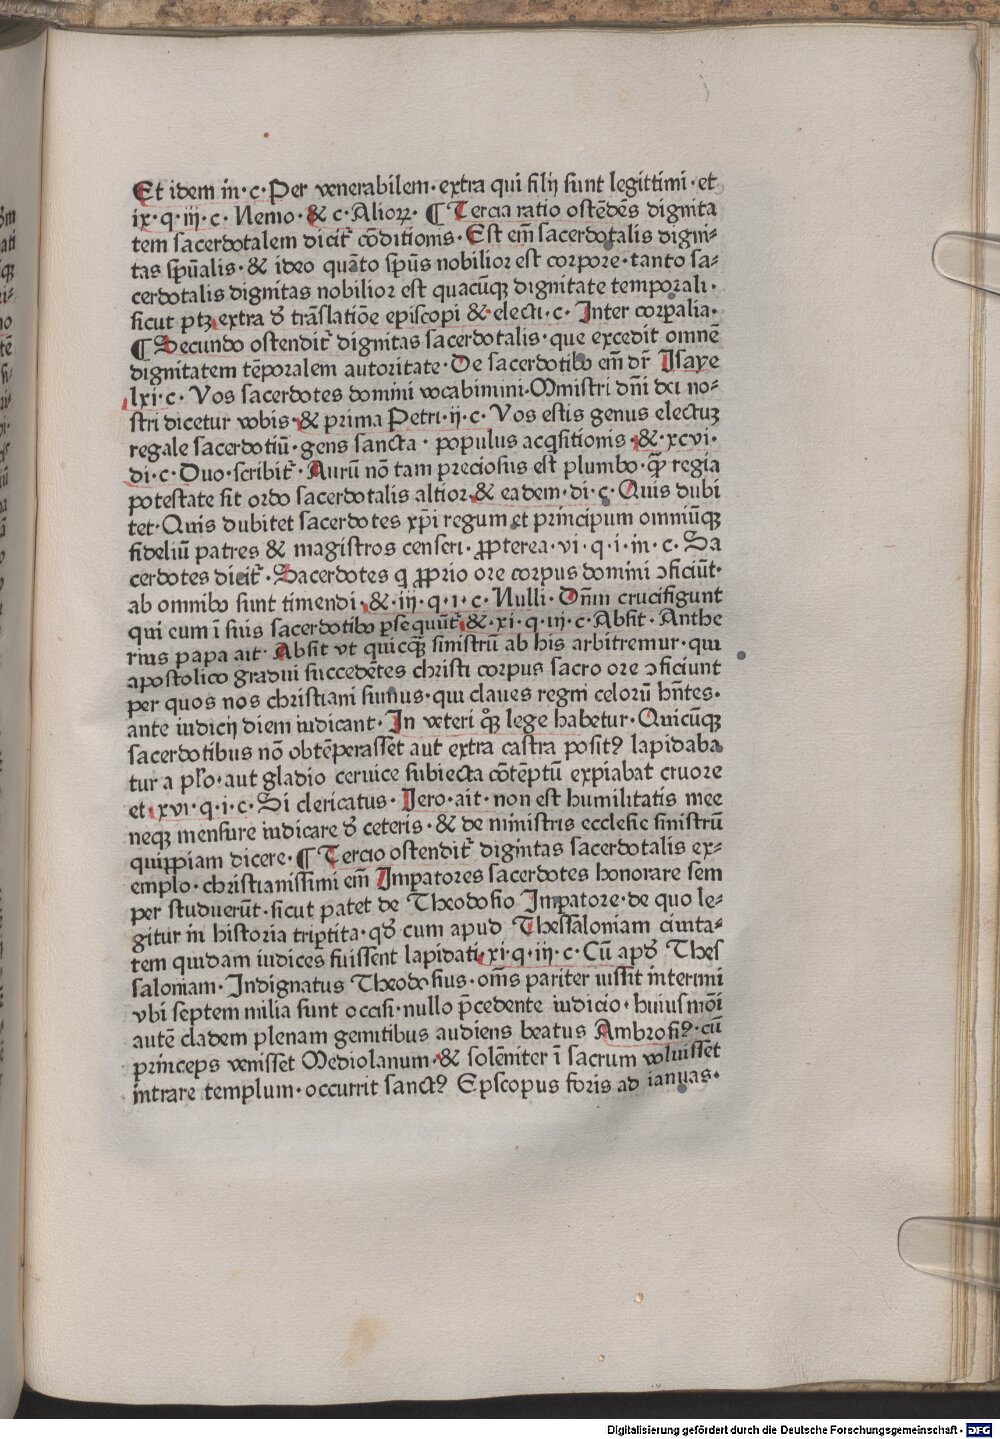 Et idem in·c·Per venerabilem·extra qui filij sunt legittimi·et
ix·q·iij·c·Nemo·& c·Alioꝝ·¶Tercia ratio ostēdēs dignita
tem sacerdotalem dicit᷑ cōditionis·Est em̄ sacerdotalis digni⸗
tas sp̄ualis·& ideo quāto sp̄us nobilior est corpore·tanto sa⸗
cerdotalis dignitas nobilior est quacūqꝫ dignitate temporali·
sicut ptꝫ extra đ trāslatiōe episcopi & electi·c·Inter corꝑalia·
¶Secundo ostendit᷑ dignitas sacerdotalis·que excedit omnē
dignitatem tēporalem autoritate·De sacerdotibꝰ em̄ dr̄ Isaye
lxi·c·Vos sacerdotes domini vocabimini·Ministri dn̄i dei no⸗
stri dicetur vobis·& prima Petri·ij·c·Vos estis genus electuꝫ
regale sacerdotiū·gens sancta·populus acq̇sitionis·&·xcvi·
di·c·Duo·scribit᷑·Aurū nō tam preciosius est plumbo·qꝫ̄ regia
potestate sit ordo sacerdotalis altior·& eadem·di·c·Quis dubi
tet·Quis dubitet sacerdotes xp̄i regum et principum omniūqꝫ
fideliū patres & magistros censeri·ꝓpterea·vi·q·i·in·c·Sa
cerdotes dicit᷑·Sacerdotes q ꝓprio ore corpus domini ↄficiūt·
ab omnibꝰ sunt timendi·&·iij·q·i·c·Nulli·Dn̄m crucifigunt
qui eum ī suis sacerdotibꝰ ꝑsequūt᷑·&·xi·q·iij·c·Absit·Anthe
rius papa ait·Absit vt quicqꝫ̄ sinistrū ab his arbitremur·qui
apostolico gradui succedētes christi corpus sacro ore ↄficiunt
per quos nos christiani sumus·qui claues regni celorū hn̄tes·
ante iudicij diem iudicant·In veteri qͦꝫ lege habetur·Quicūqꝫ
sacerdotibus nō obtēperasset aut extra castra positꝰ lapidaba
tur a pl̄o·aut gladio ceruice subiecta cōtēptū expiabat cruore
et·xvi·q·i·c·Si clericatus·Jero·ait·non est humilitatis mee
neqꝫ mensure iudicare đ ceteris·& de ministris ecclesie sinistrū
quippiam dicere·¶Tercio ostendit᷑ dignitas sacerdotalis ex⸗
emplo·christianissimi em̄ Imꝑatores sacerdotes honorare sem
per studuerūt·sicut patet de Theodosio Imꝑatore·de quo le⸗
gitur in historia triꝑtita·qđ cum apud Thessaloniam ciuita⸗
tem quidam iudices fuissent lapidati·xi·q·iij·c·Cū apđ Thes
saloniam·Indignatus Theodosius·om̄s pariter iussit interimi
vbi septem milia sunt occisi·nullo p̄cedente iudicio·huiusmōi
autē cladem plenam gemitibus audiens beatus Ambrosiꝰ·cū
princeps venisset Mediolanum·& solēniter ī sacrum voluisset
intrare templum·occurrit sanctꝰ Episcopus foris ad ianuas·
Digitalisierung gefördert durch die Deutsche Forschungsgemeinschaft - DFG